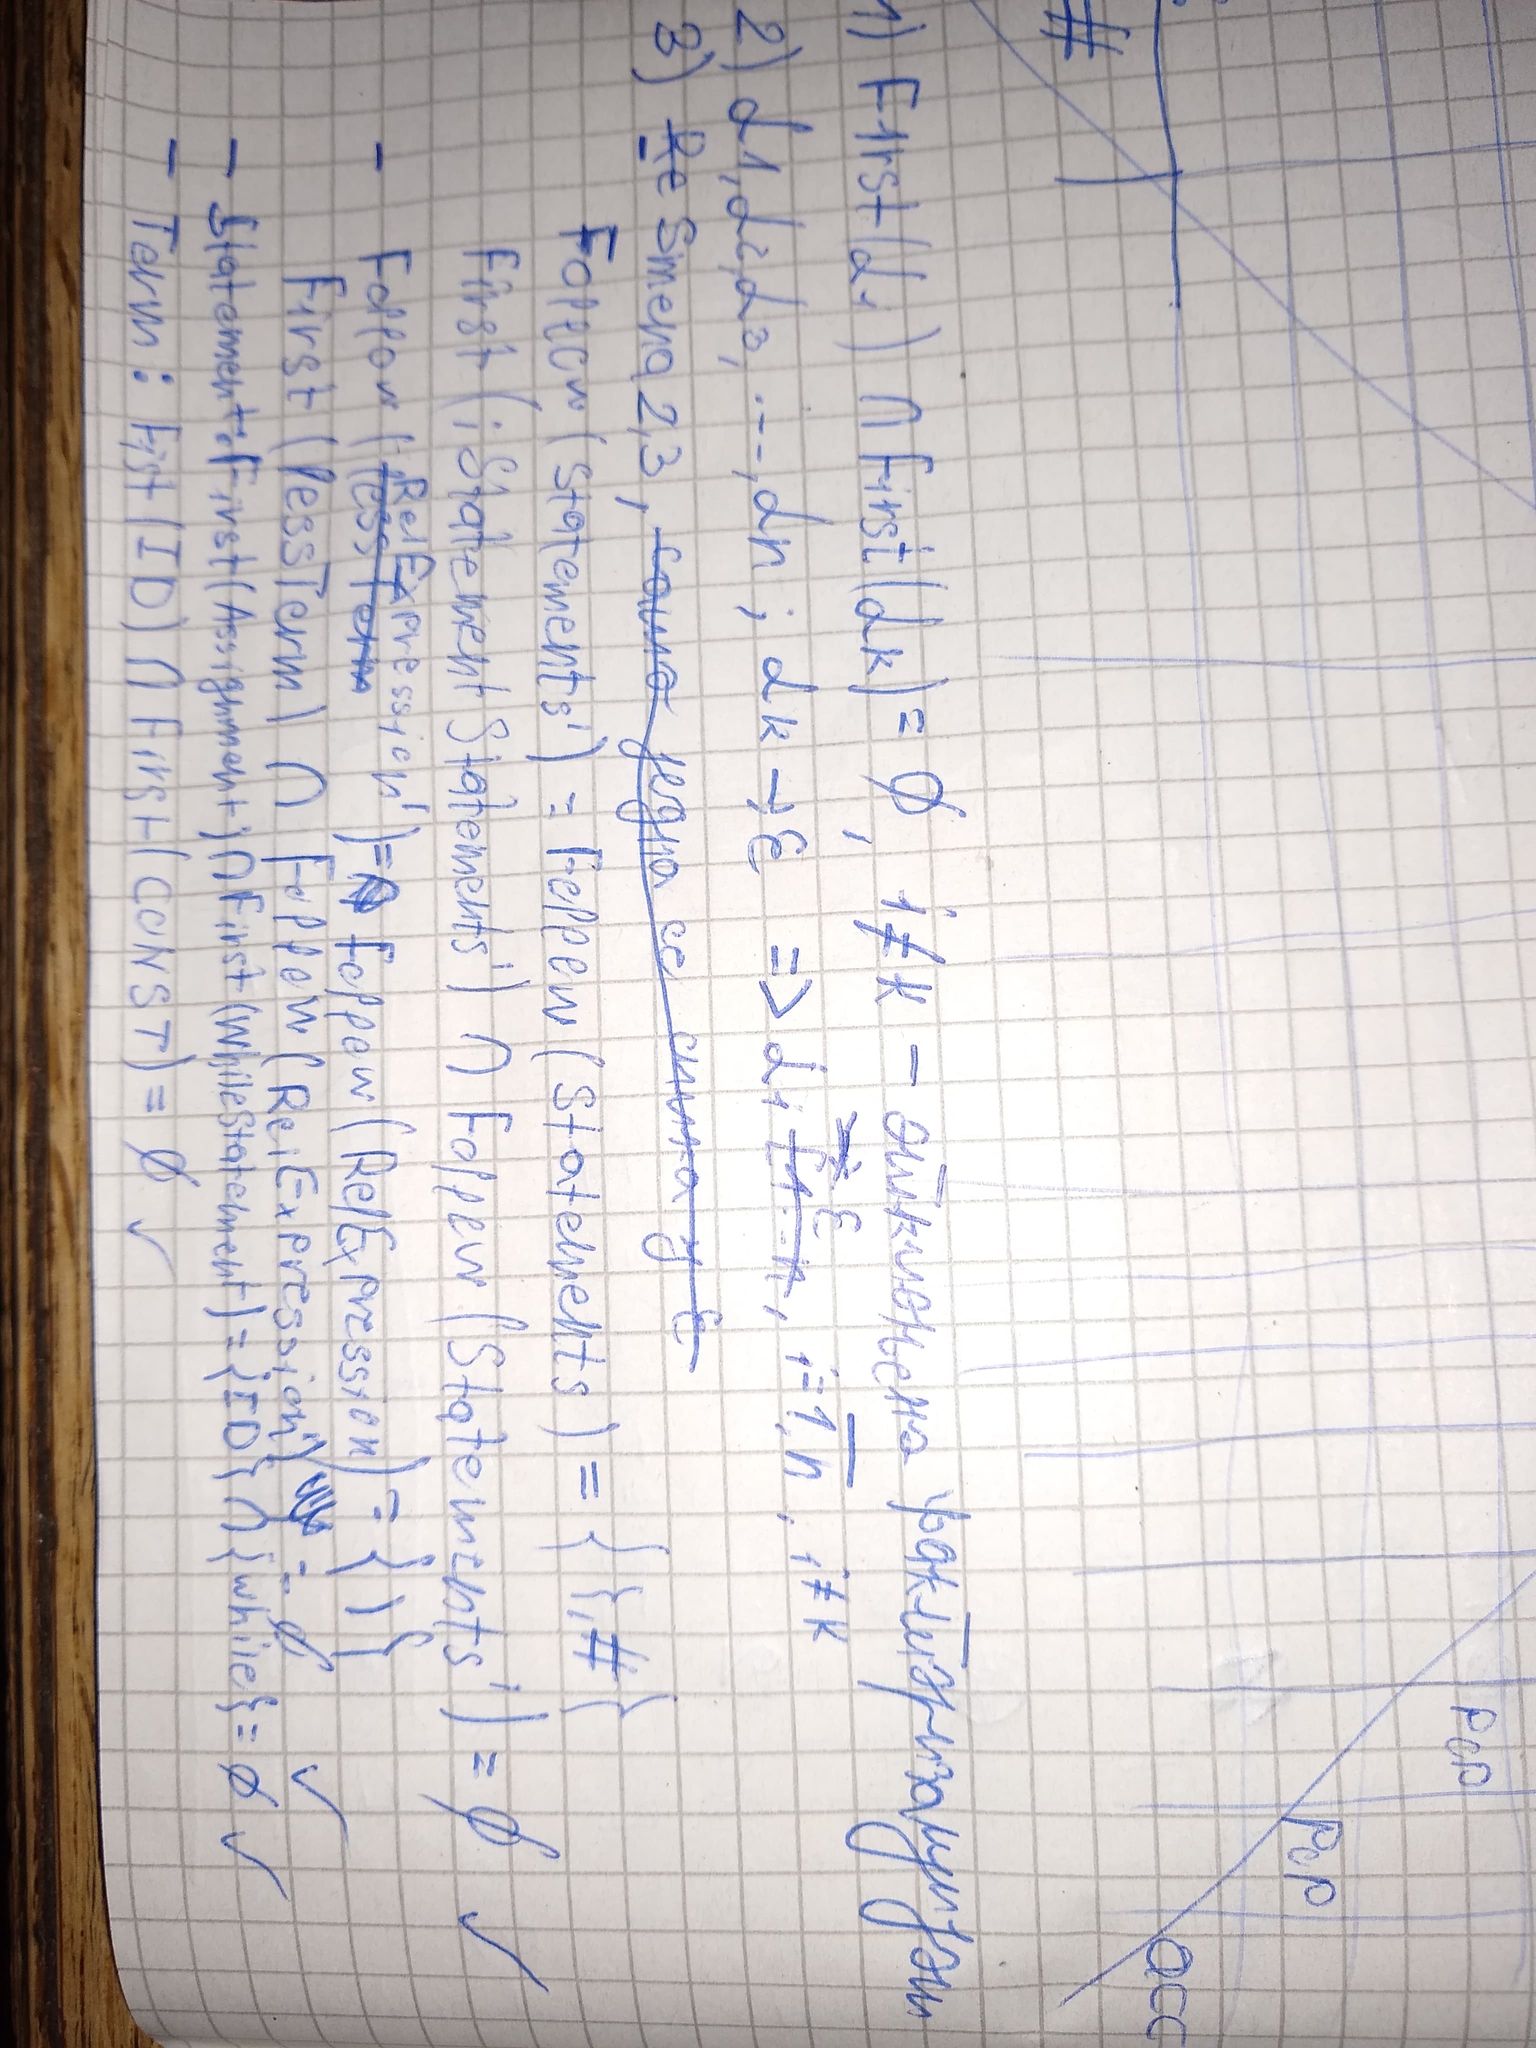 pop
pop
acc
#
1) First(α1) ∩ First(αk) = ∅, i ≠ k –
2) α1, α2, α3, ..., αn ; αk → ε => αi ε, i = 1, n, i ≠ k
3) Smena 2,3, само једна се у ε
Follow (Statements') = Follow (Statements) = { }, # }
First (; Statement Statements') ∩ Follow (Statements') = ∅ ✓
- Follow (RelExpression') = Follow (RelExpression) = { ) }
First (lessTerm) ∩ Follow (RelExpression') = ∅ ✓
- Statement: First (Assignment) ∩ First (WhileStatement) = {ID} ∩ {while} = ∅ ✓
- Term: Fist (ID) ∩ First (CONST) = ∅ ✓